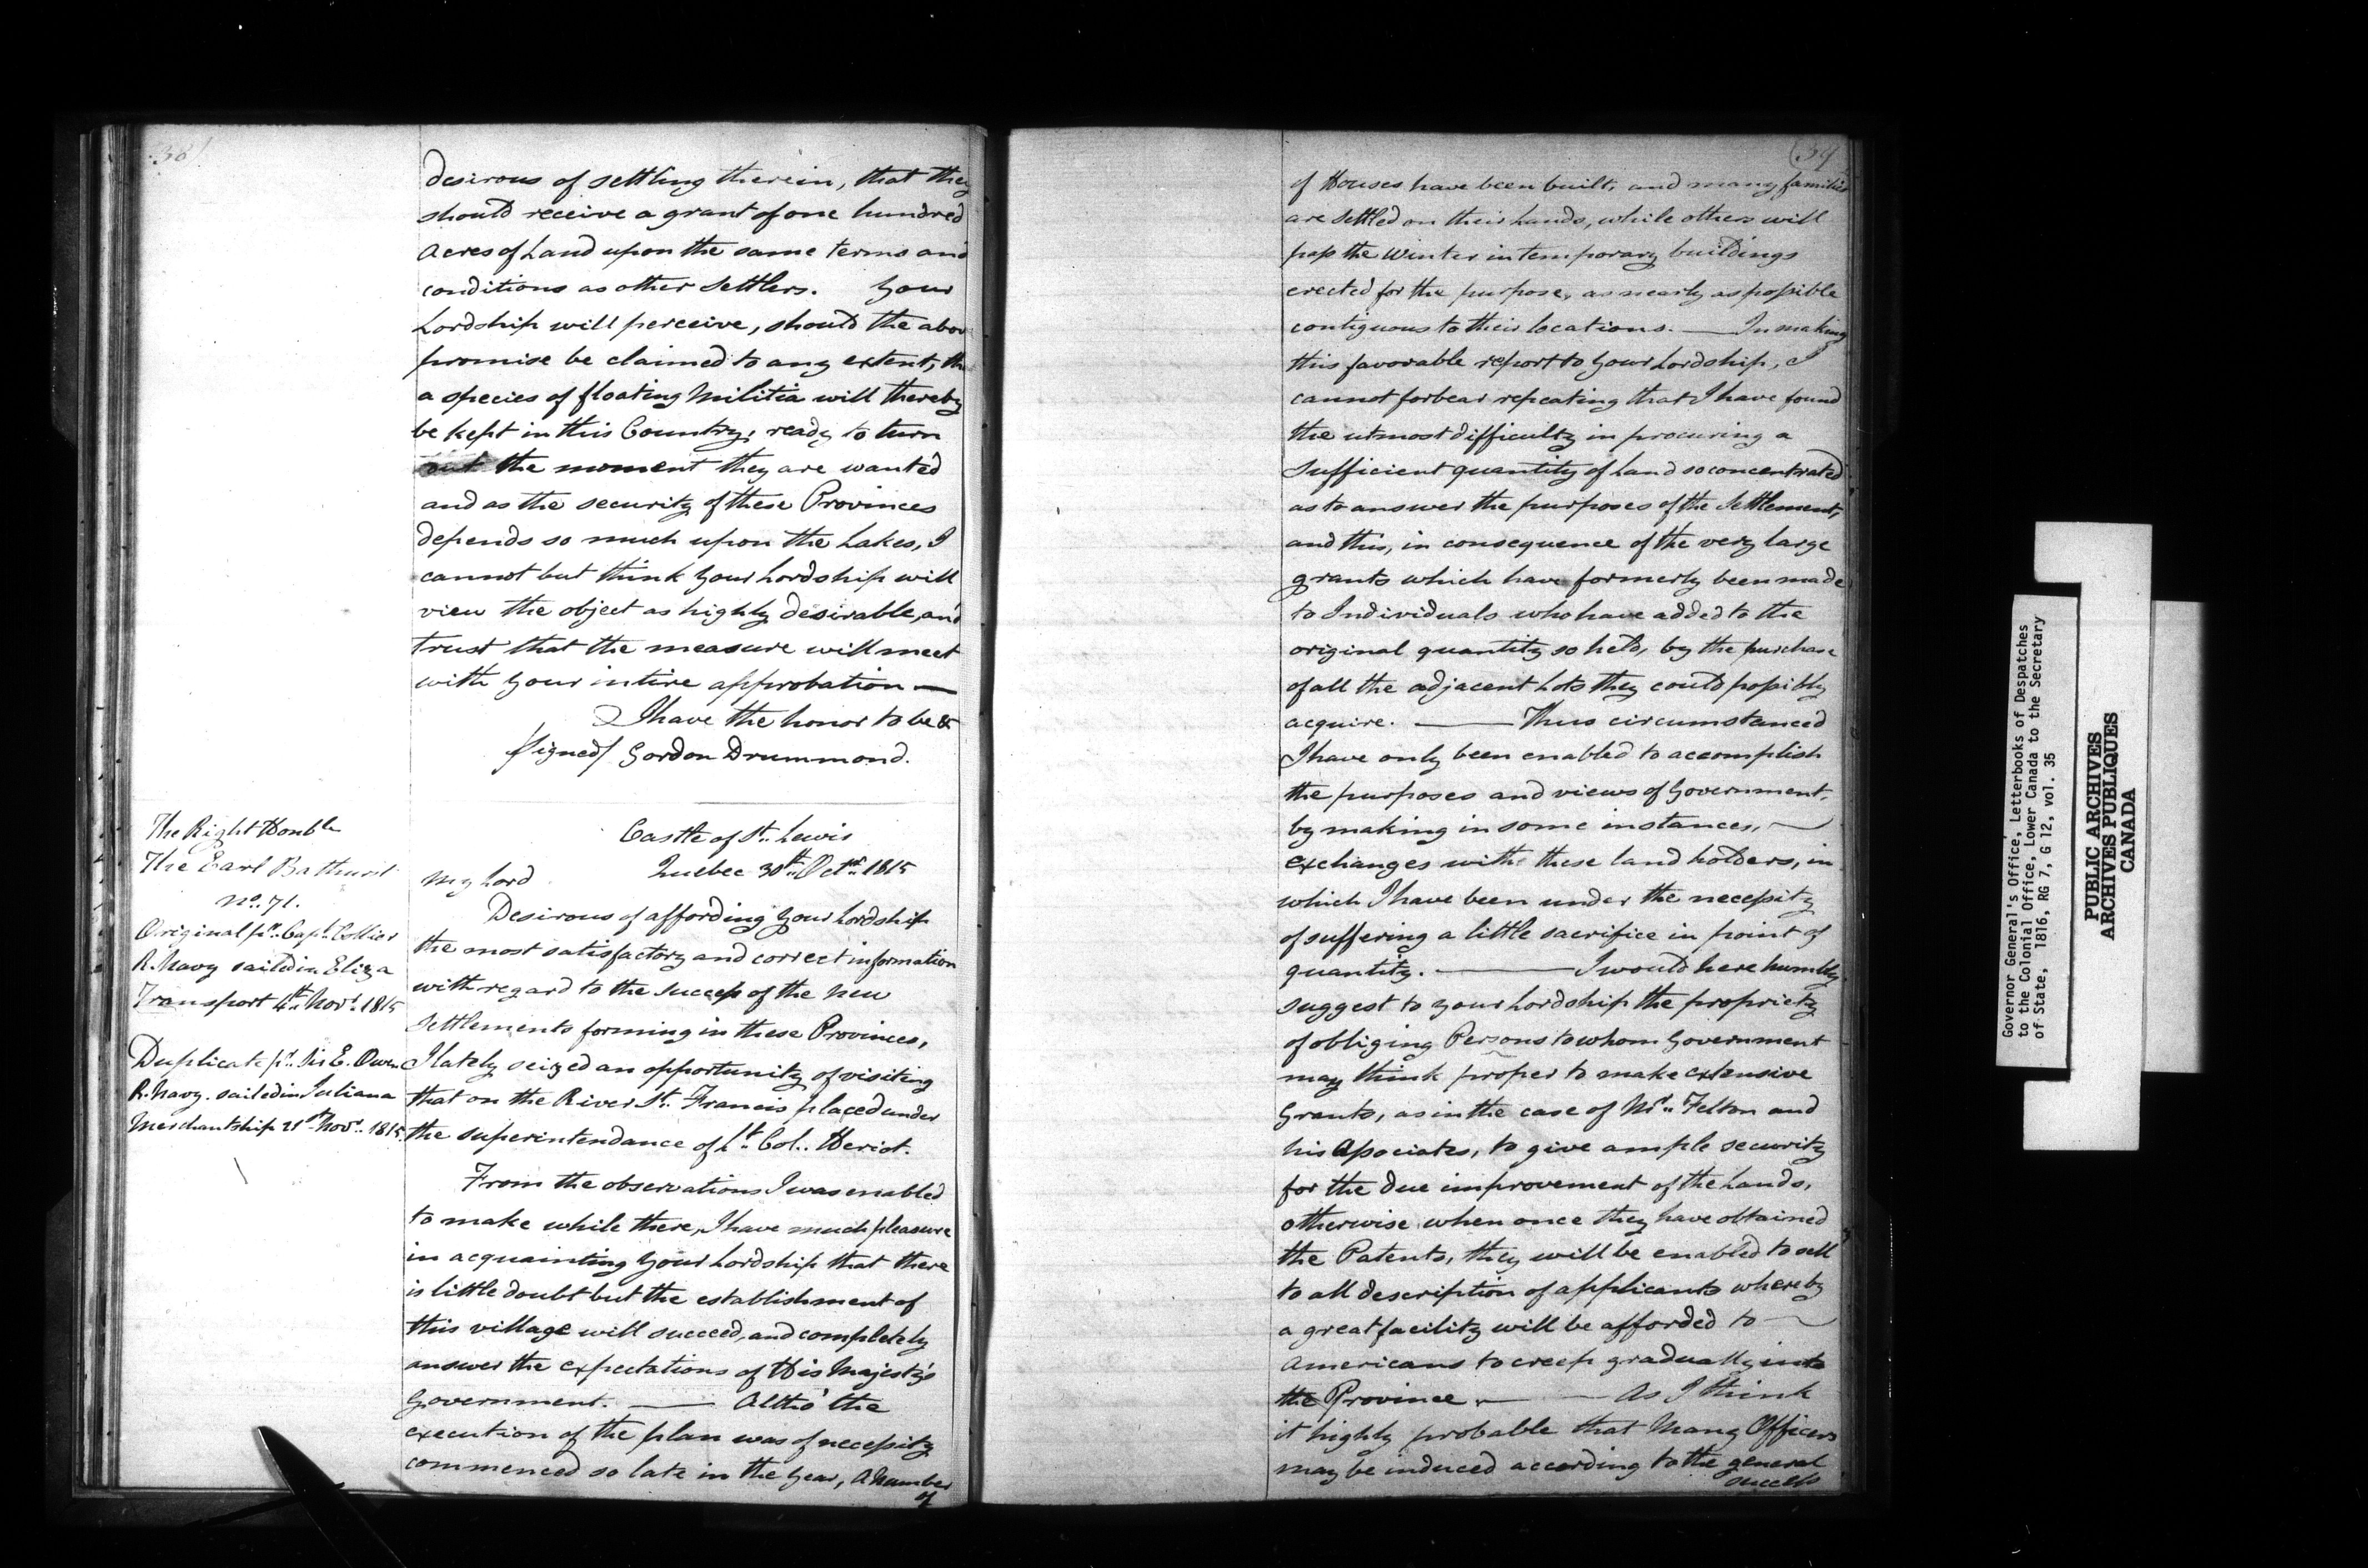 38
desirous of settling therein, that they
should receive a grant of one hundred
Acres of Land upon the same terms and
conditions as other Settlers. Your
Lordship will perceive, should the abov
promise be claimed to any extent, th
a species of floating Militia will thereby
be kept in this Country, ready to turn
out the moment they are wanted
and as the security of these Provinces
depends so much upon the Lakes, I
cannot but think Your Lordship will
view the object as highly desirable, and
trust that the measure will meet
with your intire approbation —
I have the honor to be &
/signed/ Gordon Drummond.
The Right Honble
The Earl Bathurst
No. 71.
Original pr. Capt. Collier
R. Navy sailed in Eliza
Transport 4th Novr. 1815
Duplicate pr. Sir E. Owen
R. Navy. sailed in Juliana
Merchantship 21st Novr. 1815.
Castle of St. Lewis
Quebec 30th Octr. 1815
My Lord
Desirous of affording Your Lordship
the most satisfactory and correct information
with regard to the success of the new
Settlements forming in these Provinces,
I lately seized an opportunity of visiting
that on the River St. Francis placed under
the superintendance of Lt. Col. Heriot.
From the observations I was enabled
to make while there, I have much pleasure
in acquainting Your Lordship that there
is little doubt but the establishment of
this village will succeed, and completely
answer the expectations of His Majesty's
Government. — Altho' the
execution of the plan was of necessity
commenced so late in the Year, A Number
of
39
of Houses have been built, and many families
are settled on their Lands, while others will
pass the Winter in temporary buildings
erected for the purpose, as nearly as possible
contiguous to their locations. — In making
this favorable report to Your Lordship, I
cannot forbear repeating that I have found
the utmost difficulty in procuring a
sufficient quantity of Land so concentrated
as to answer the purposes of the Settlement,
and this, in consequence of the very large
grants which have formerly been made
to Individuals who have added to the
original quantity so held, by the purchase
of all the adjacent Lots they could possibly
acquire. — Thus circumstanced
I have only been enabled to accomplish
the purposes and views of Government,
by making in some instances, —
exchanges with these land holders, in
which I have been under the necessity
of suffering a little sacrifice in point of
quantity. — I would here humbly
suggest to Your Lordship the propriety
of obliging Persons to whom Government
may think proper to make extensive
Grants, as in the case of Mr. Felton and
his Associates, to give ample security
for the due improvement of the Lands,
otherwise when once they have obtained
the Patents, they will be enabled to sell
to all description of applicants whereby
a great facility will be afforded to —
Americans to creep gradually into
the Province. — As I think
it highly probable that Many Officers
may be induced according to the general
success
Governor General's Office, Letterbooks of Despatches
to the Colonial Office, Lower Canada to the Secretary
of State, 1816, RG 7, G 12, vol. 35
PUBLIC ARCHIVES
ARCHIVES PUBLIQUES
CANADA